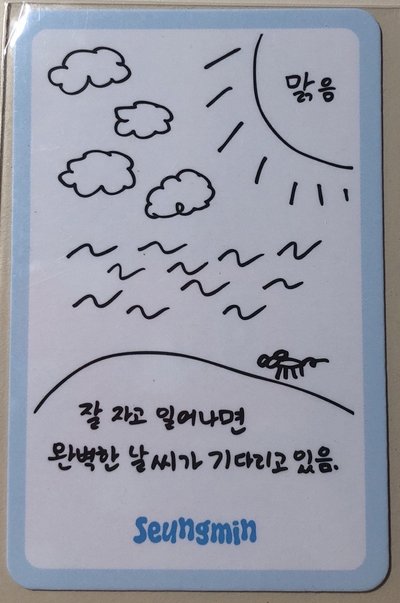 맑음
잘 자고 일어나면
완벽한 날씨가 기다리고 있음.
Seungmin